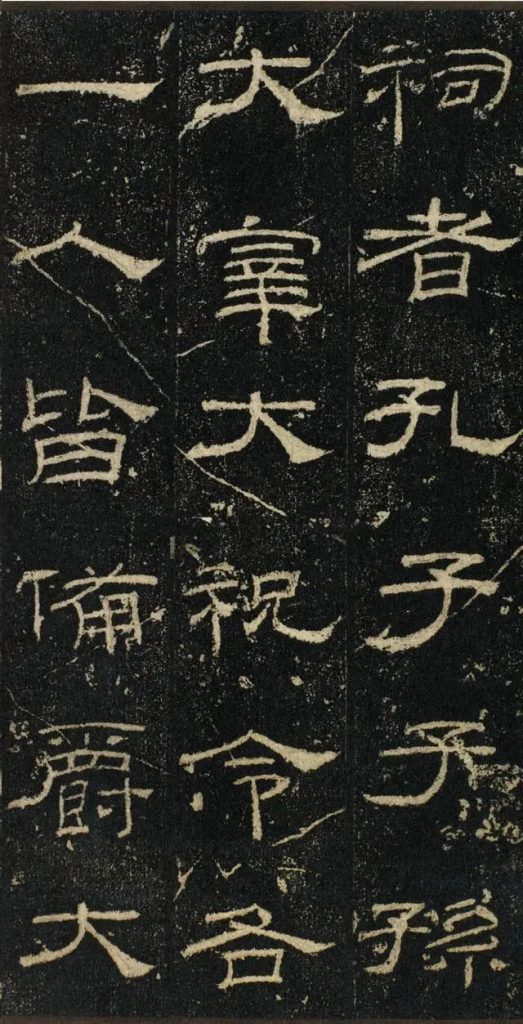 祠者孔子子孫
大宰大祝令各
一人皆備爵大